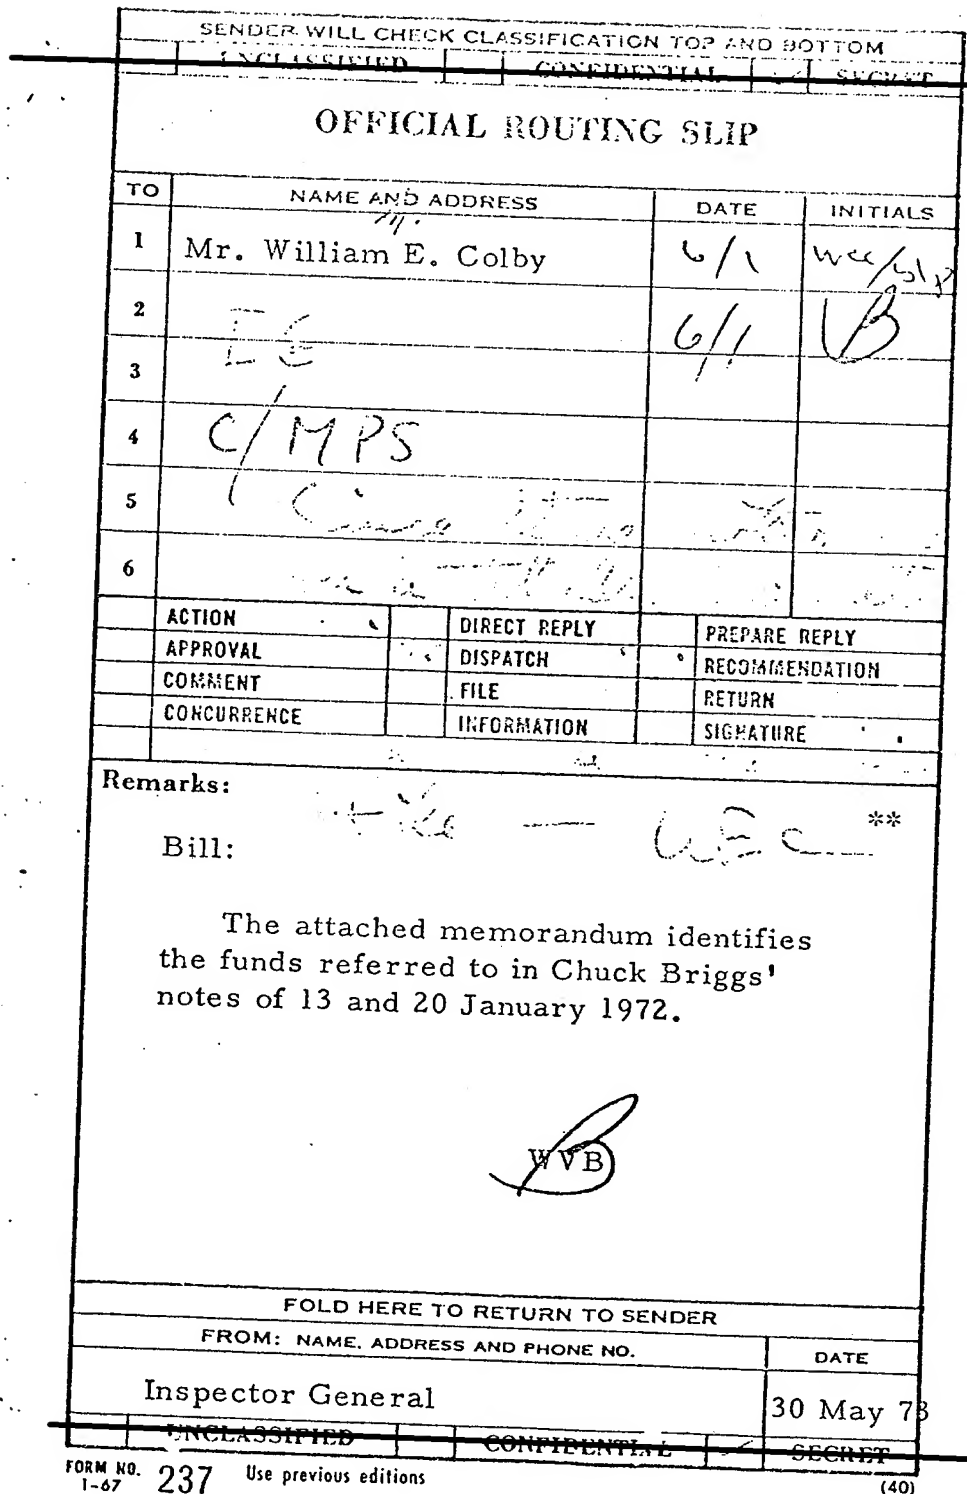 SENDER WILL CHECK CLASSIFICATION TOP AND BOTTOM
UNCLASSIFIED CONFIDENTIAL SECRET
OFFICIAL ROUTING SLIP
TO NAME AND ADDRESS DATE INITIALS
1 Mr. William E. Colby 6/1
2 IG 6/1
3
4 C/MPS
5
6
ACTION DIRECT REPLY PREPARE REPLY
APPROVAL DISPATCH RECOMMENDATION
COMMENT FILE RETURN
CONCURRENCE INFORMATION SIGNATURE
Remarks:
WEC **
Bill:
The attached memorandum identifies
the funds referred to in Chuck Briggs'
notes of 13 and 20 January 1972.
WVB
FOLD HERE TO RETURN TO SENDER
FROM: NAME, ADDRESS AND PHONE NO. DATE
Inspector General 30 May 73
UNCLASSIFIED CONFIDENTIAL SECRET
FORM NO. 237 Use previous editions (40)
1-67